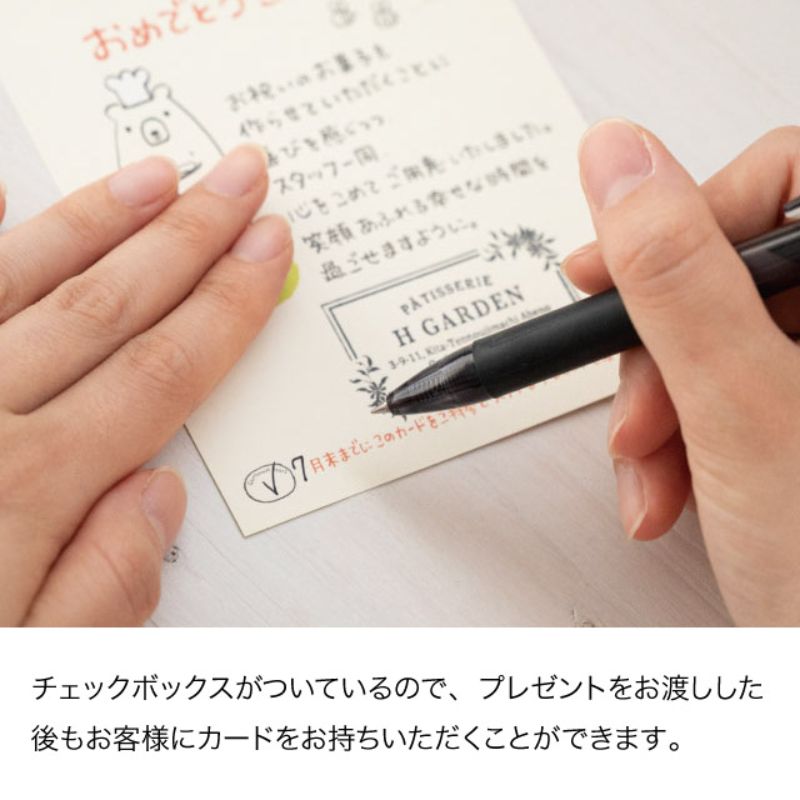 おめでとうご
お祝いのお菓子を
作らせていただくことに
喜びを感じつつ
スタッフ一同
心をこめてご用意いたしました。
笑顔あふれる幸せな時間を
過ごせますように。
PÂTISSERIE
H GARDEN
3-9-11, Kita-Tennoujimachi Abeno
7月末までにこのカードをご持参
チェックボックスがついているので、プレゼントをお渡しした
後もお客様にカードをお持ちいただくことができます。